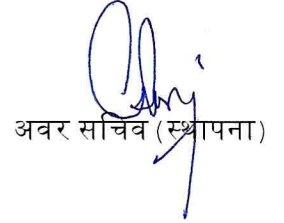 अवर सचिव (स्थापना)